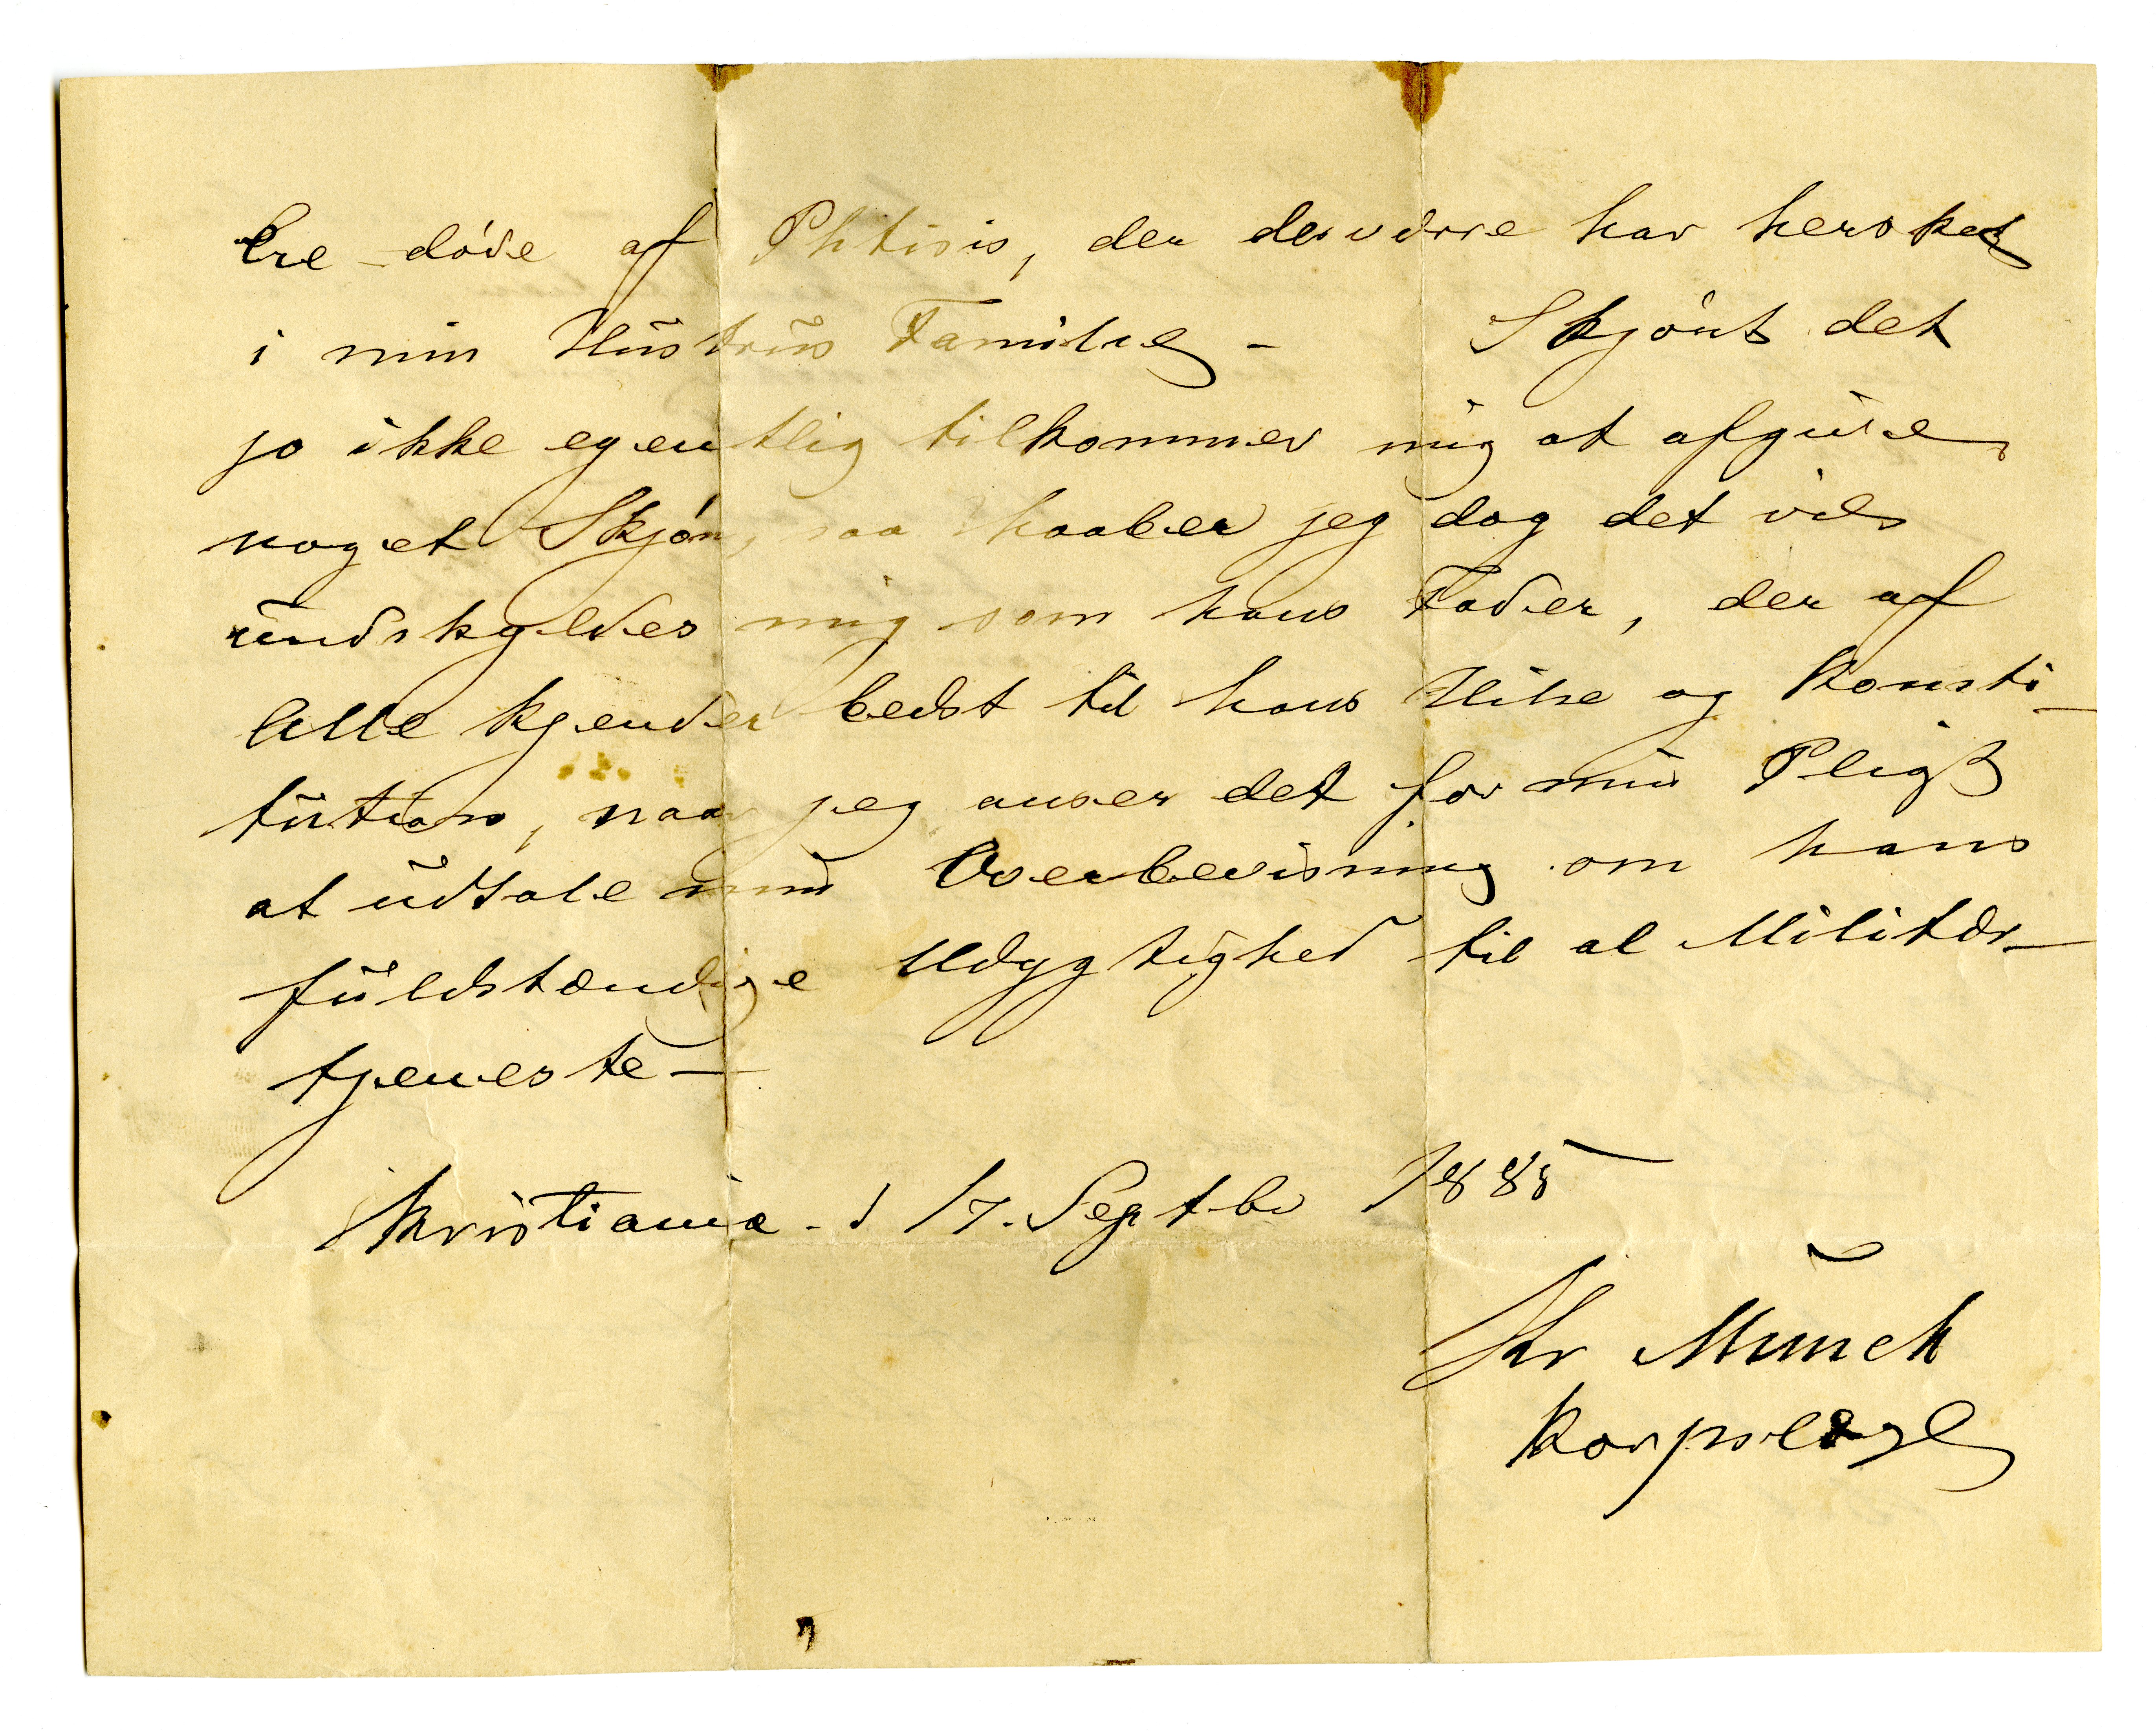 Ere døde af Phtisis, der desværre har hersket
i min Hustrus Familie –  Skjønt det
jo ikke egentlig tilkommer mig at afgive
noget Skjøn, saa haaber jeg dog det vil
undskyldes mig som hans Fader, der af
Alle kjender bedst til hans Helse og Konsti-
tution, naar jeg anser det for min Pligt
at udtale min Overbevisning om hans
fuldstændige Udygtighed til al Militær-
tjeneste –
Kristiania d 17. Septbr 1885
Chr Munch
Korpslæge